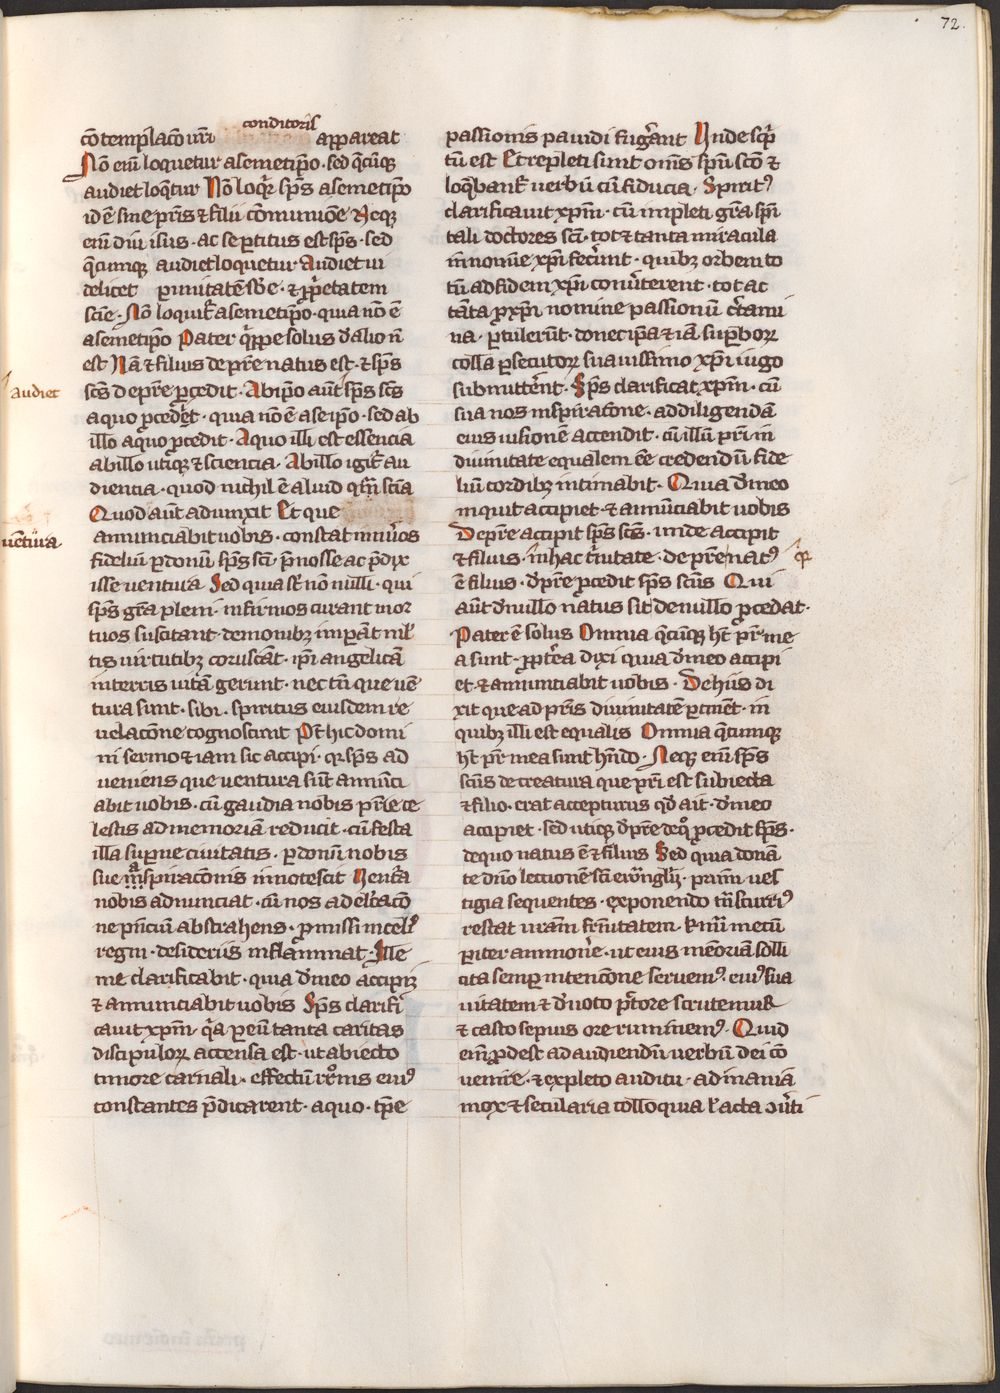 72.
conditoris
cō templacō ur̄i appareat
Nō eni̅ loquetur a semetip̄o · sed q̄cūq;
audiet loq̄tur Nō loq̄r̄ sp̄s a semetip̄o
id ē sine pr̄is ⁊ filii cōmuniōe Neq;
eni̅ diuisus · ac sepertitus est sp̄s · sed
q̄cumq; audiet loquetur Audiet ui
delicet p unitatē sb̄e · ⁊ ꝓp̄etatem
scīe · Nō loquit̄ a semetip̄o · quia nō ē
a semetip̄o Pater q̄ppe solus d̄ alio n̄
est Nā ⁊ filius de pr̄e natus est · ⁊ sp̄s
sc̄s de pr̄e ꝓcedit · Ab ip̄o aūt sp̄s sc̄s
audiet
a quo ꝓcedet · quia nō ē a se ip̄o · sed ab
illo a quo ꝓcedit · A quo illi est essencia
ab illo utiq; ⁊ sciencia · Ab illo igit̄ au
diencia · quod nichil ē aliud qm̄ scīa
Quod aūt adiunxit Et que
uētura
annunciabit uobis · constat īnūi̅os
fideliū ꝑ donū sp̄s sc̄i p̄nosse ac p̄dix
isse uentura Sed quia st̄ nō nulli · qui
sp̄s gr̄a pleni · infirmos curant mor
tuos suscitant · demonibꝫ imꝑāt ml̄
tis uirtutibꝫ coruscāt · ip̄i angelicā
in terris uitā gerunt · nec tn̄ que uē
tura sunt · sibi · spiritus eiusdem re
uelacōne cognoscunt Pōt hic domi
ni sermo etiam sic accipi · q sp̄s ad
ueniens que uentura sūt annūci
abit uobis · cū gaudia nobis pr̄ie ce
lestis ad memoriā reducit · cū festa
illa suꝑne ciuitatis · ꝑ donū nobis
sue inspiracōnis innotescit Uentūa
nobis adnunciat · cū nos a delc̄acō
ne pn̄ciū abstrahens · ꝓmissi in cel̄
regni · desideriis inflammat · Ille
me clarificabit · quia d̄ meo accipiꝫ
⁊ annunciabit uobis Sp̄s clarifi
cauit xp̄m · q̄a ꝑ eū tanta caritas
discipulor̄ accensa est · ut abiecto
timore carnali · effectū rr̄onis eiꝰ
constantes p̄dicarent · a quo · tp̄e
passionis pauidi fuger̄ant Unde sc̄p
tū est Et repleti sunt om̄s sp̄u scō ⁊
loq̄bant̄ uerbū cū fiducia · Spiritꝰ
clarificauit xp̄m · cū impleti gr̄a sp̄u
tali doctores sc̄i · tot ⁊ tanta miracula
in nomīe xp̄i fecer̄unt · quibꝫ orbem to
tū ad fidem xp̄i conūterent · tot ac
tāta ꝓ xp̄i nomine passionū c̄tami
na · ꝑtulerūt · donec ip̄a etiā suꝑbor̄
colla ꝑsecutor̄ suauissimo xp̄i iugo
submitter̄ent · Sp̄s clarificat xp̄m · cū
sua nos inspiratōne · ad diligendā
eius uisionē accendit · cū illū pr̄i in
diuinitate equalem ēe credendū fide
liū cordibꝫ intimabit · Quia d̄ meo
inquit accipiet · ⁊ annūciabit uobis
De pr̄e accipit sp̄s sc̄s · unde accipit
⁊ filius · In hac tr̄iitate · de pr̄e natꝰ
ē filius · d̄ pr̄e ꝓcedit sp̄s sc̄us Qui
aūt d̄ nullo natus sit de nullo ꝓcedat ·
Pater ē solus Omnia q̄cūq; ht̄ pr̄ me
a sunt · ꝓpt̄ea dixi quia d̄ meo accipi
et · ⁊ annunciabit uobis · De hiis di
xit que ad pr̄is diuinitatē ꝑtinēt · in
quibꝫ illi est equalis Omnia q̄cumq;
ht̄ pr̄ mea sunt hn̄do · Neq; eni̅ sp̄s
sc̄us de creatura que pr̄i est subiecta
⁊ filio · erat accepturus qd̄ ait · d̄ meo
accipiet · sed utiq; d̄ pr̄e de q̊ ꝓcedit sp̄s ·
de quo natus ē ⁊ filius Sed quia donā
te dn̄o lectionē sc̄i ewāglij · patrū ues
tigia sequentes · exponendo trāscurri⁹
restat ur̄am fr̄nitatem · kmi mecū
ꝑiter ammonēe · ut eius mēoriā solli
cita semꝑ intencōne seruemꝰ · eiꝰ sua
uitatem ⁊ d̄uoto pc̄tore scrutemur
⁊ casto sepius ore ruminemꝰ · Quid
eni̅ ꝓdest ad audiendū uerbū dei cō
uenire · ⁊ expleto auditu · ad inania
mox ⁊ secularia colloquia l̄ acta ↄūti